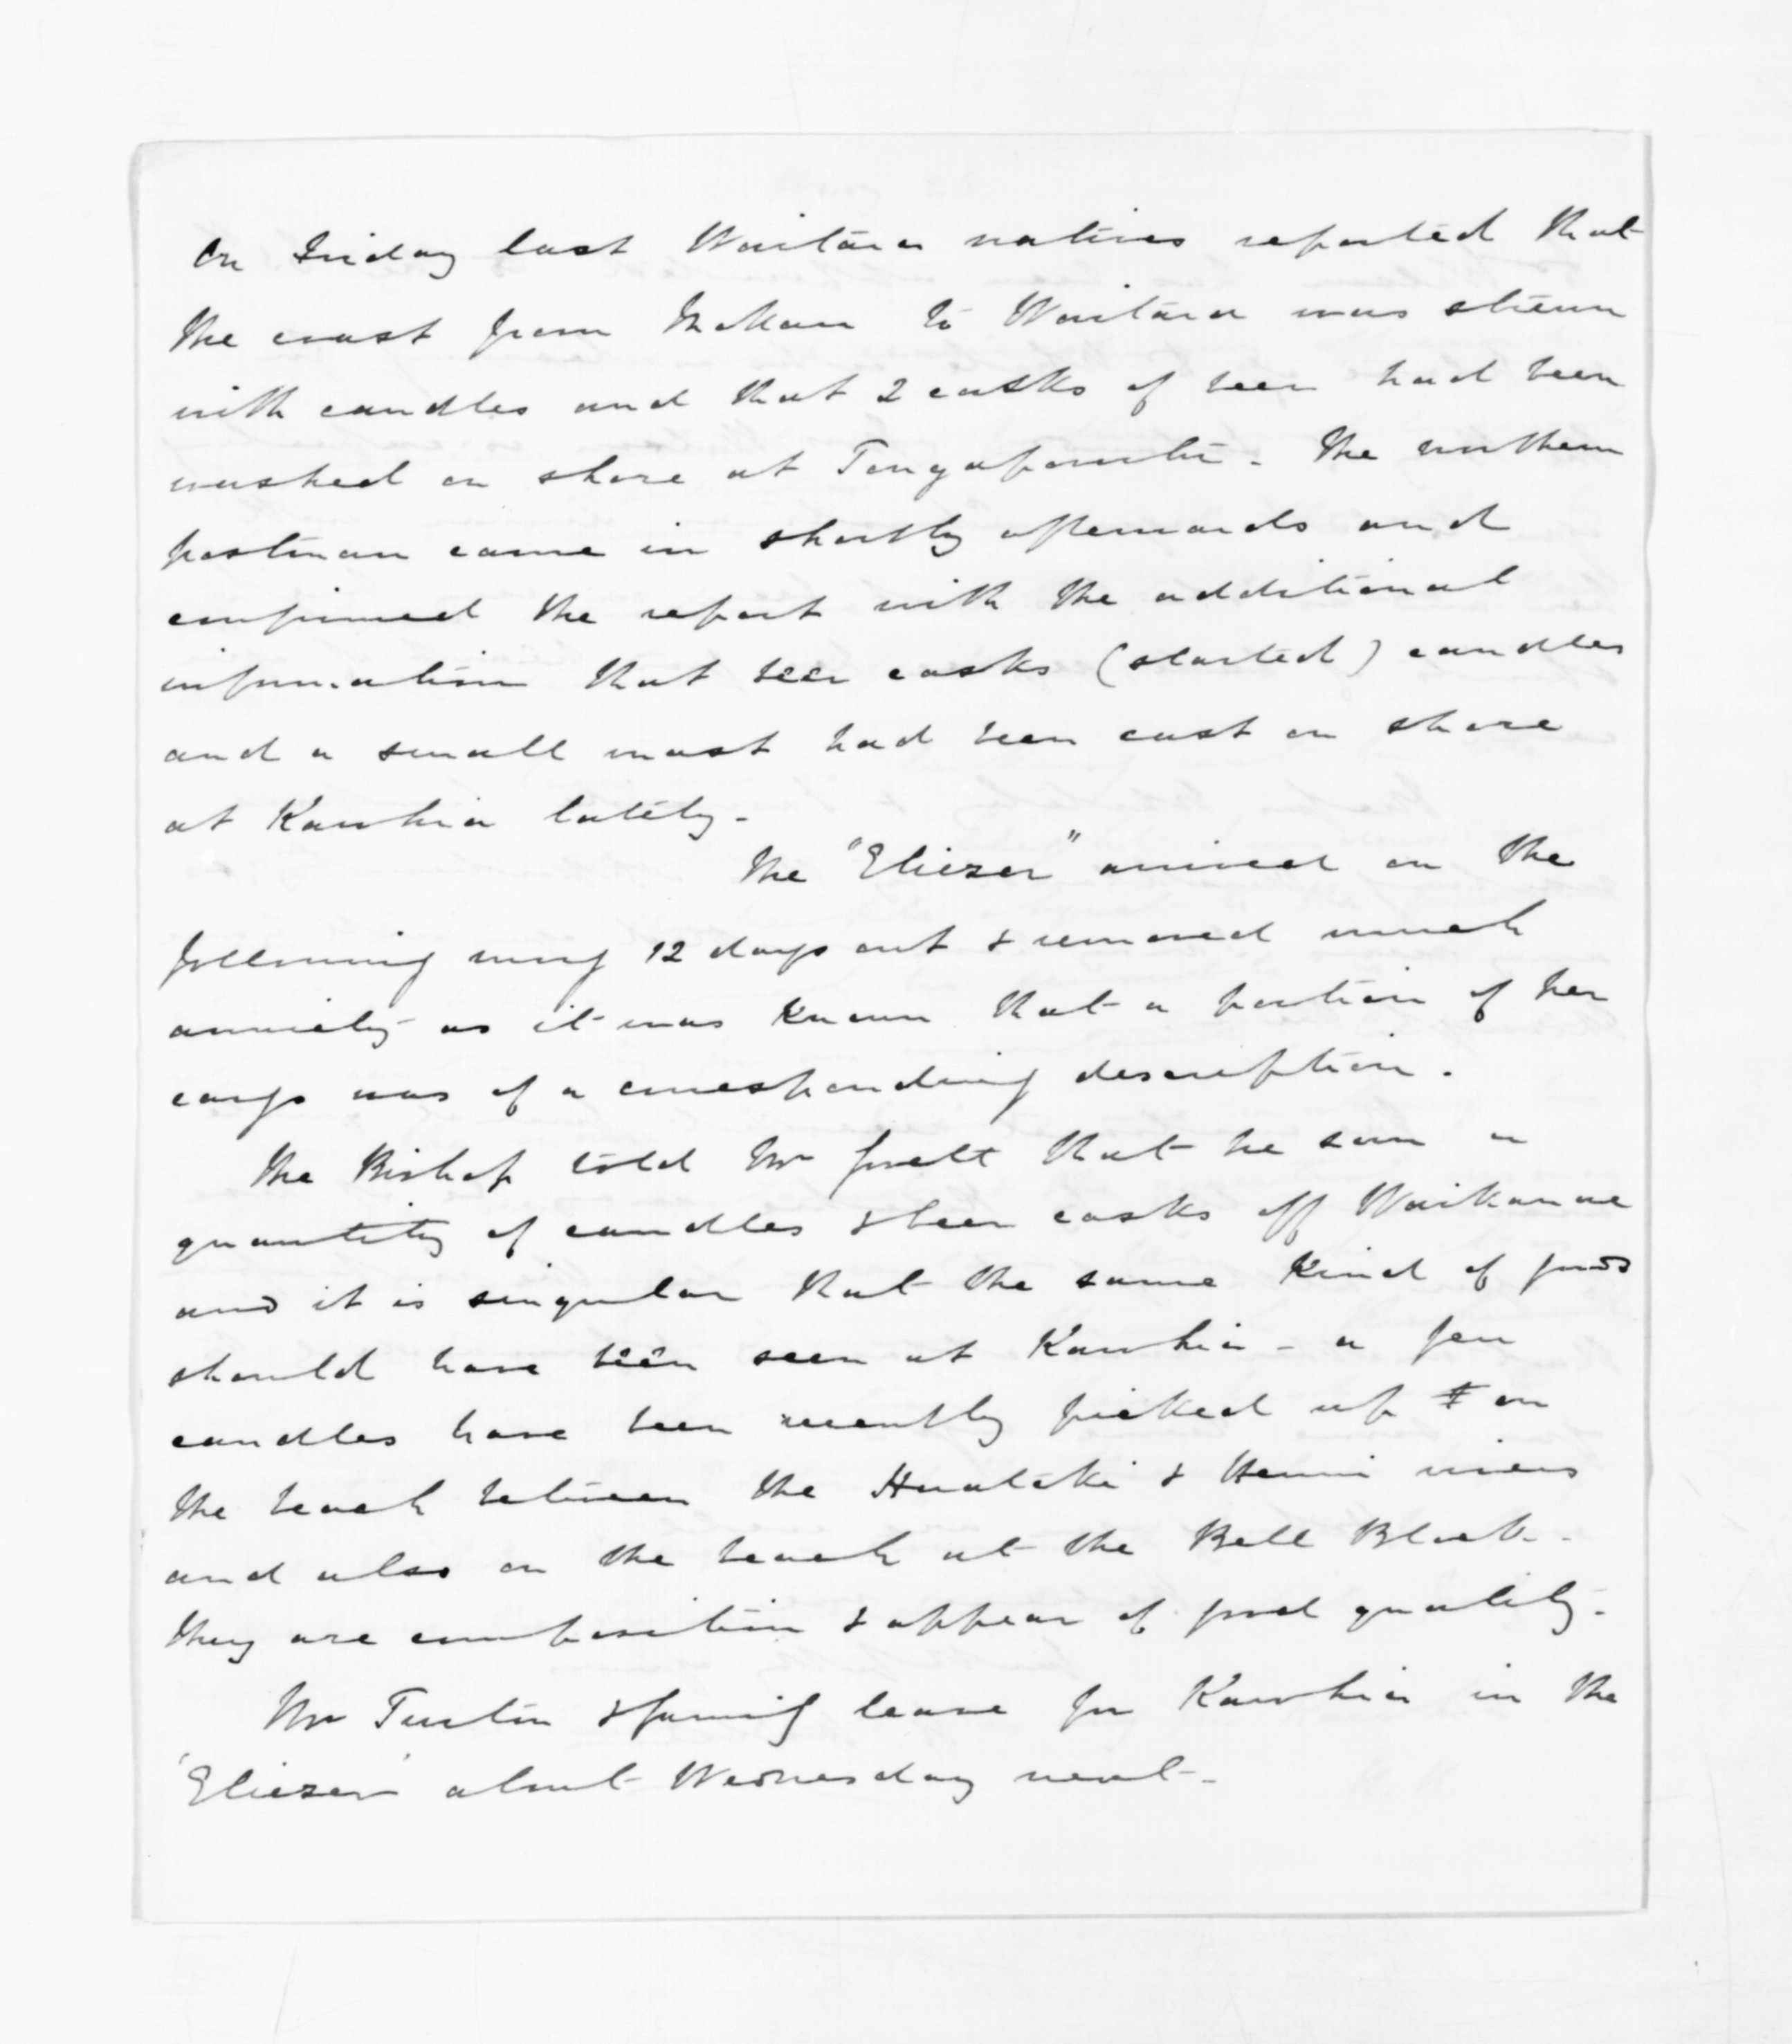 On Friday last Waitara natives reported that
the coast from Mokau to Waitara was strewn
with candles and that 2 casks of beer had been
washed on shore at Tongaporutu. The northern
postman came in shortly afterwards and
confirmed the report with the additional
information that beer casks (started) candles
and a small mast had been cast on shore
at Kawhia lately.
The "Eliezer" arrived on the
following morng 12 days out & removed much
anxiety as it was known that a portion of her
cargo was of a corresponding description.
The Bishop told Mr that he saw a
quantity of candles & beer casks off Waikanae
and it is singular that the same kind of goods
should have been seen at Kawhia - a few
candles have been recently picked up on
the beach between the Huatoki & Henui rivers
and also on the beach at the Bell Block.
They are composition & appear of good quality.
Mr Turton & family leave for Kawhia in the
'Eliezer' about Wednesday next.